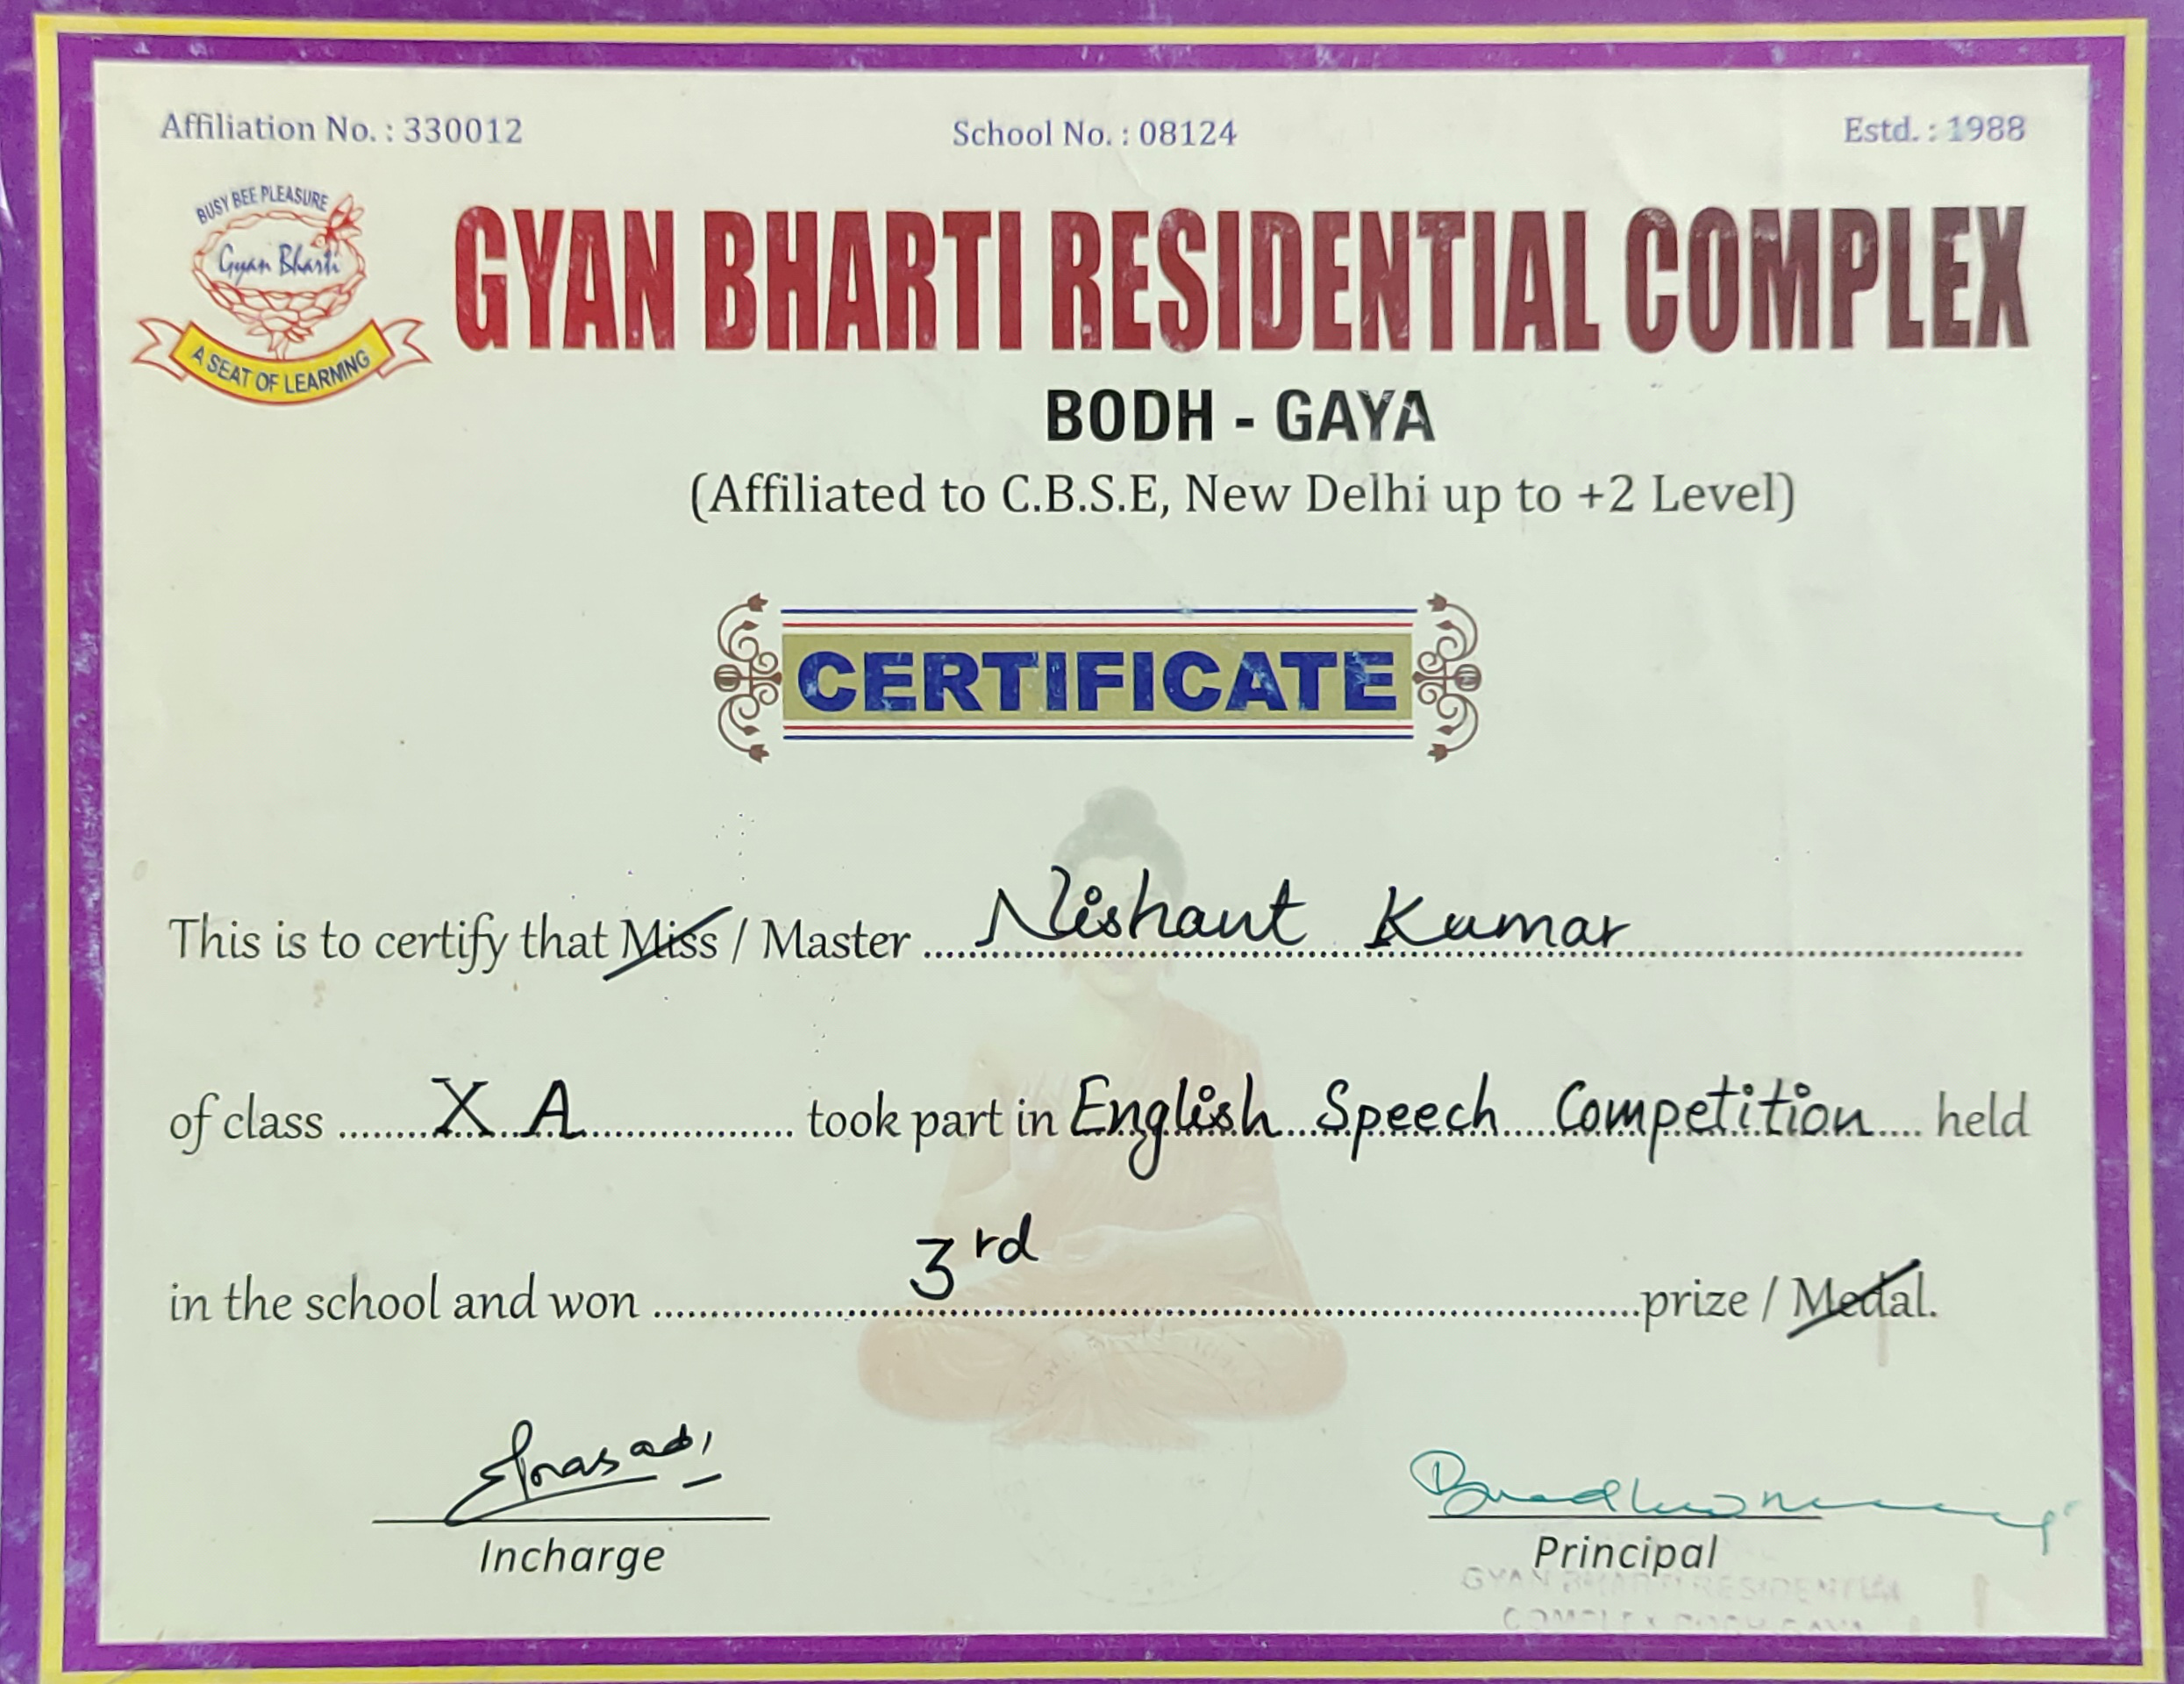 Affiliation No. : 330012 School No. : 08124 Estd. : 1988
BUSY BEE PLEASURE
Gyan Bharti
A SEAT OF LEARNING
GYAN BHARTI RESIDENTIAL COMPLEX
BODH - GAYA
(Affiliated to C.B.S.E, New Delhi up to +2 Level)
CERTIFICATE
This is to certify that Miss / Master Nishant Kumar
of class X A took part in English Speech Competition held
in the school and won 3rd prize / Medal.
Incharge Principal
GYAN BHARTI RESIDENTIAL
COMPLEX BODH GAYA